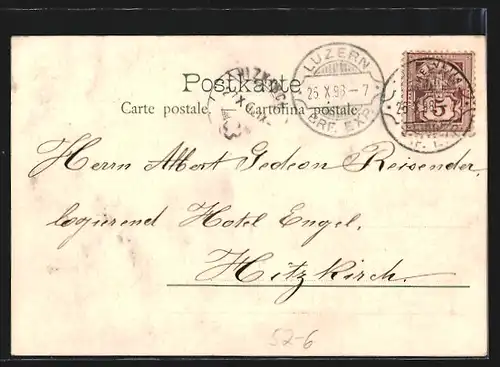 Postkarte
Carte postale. Cartolina postale
LUZERN
25.X.98–7
BRF. EXP.
5
Herrn Albert Gedeon Reisender,
logierend Hotel Engel,
Hitzkirch.
52-6